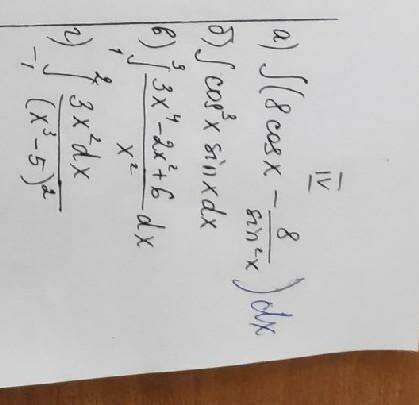 IV
а) ∫(8cosx - 8/sin²x)dx
б) ∫cos³x sinxdx
в) ∫₁³ (3x⁴-2x²+6)/x² dx
г) ∫₋₁² 3x²dx/(x³-5)²